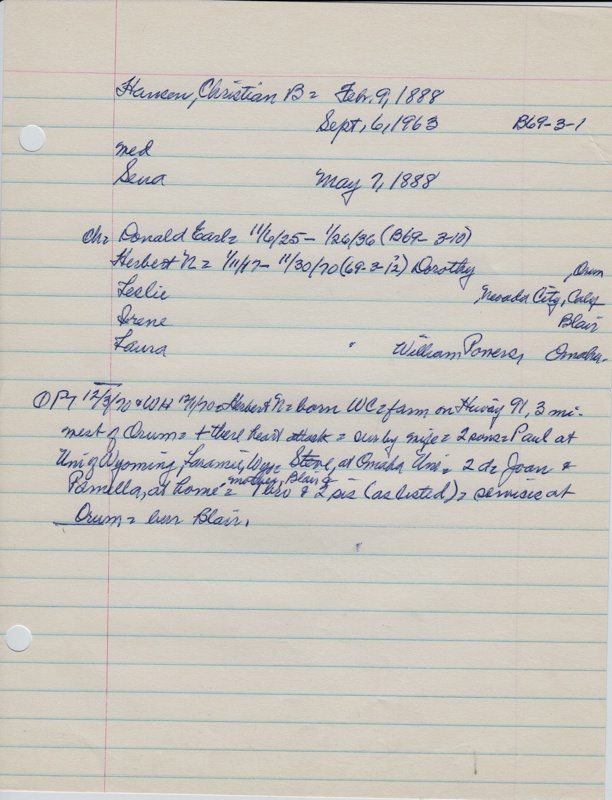 Hansen, Christian B = Feb. 9, 1888
Sept, 6, 1963 B69-3-1
med
Sena May 7, 1888
Ch = Donald Earl = 11/6/25 - 1/26/36 (B69-3-10)
Herbert N = 1/11/17 - 11/30/70 (69-3-12) Dorothy Orum
Leslie Nevada City, Calif
Irene Blair
Laura William Powers, Omaha.
OP, 12/3/70 & WH 12/1/70 = Herbert N = born WC = farm on Huway 91, 3 mi.
west of Orum = + there heart attack = sur by wife = 2 sons = Paul at
Uni of Wyoming, Laramie, Wyo = Steve, at Omaha Uni = 2 d = Joan &
Pamella, at home = mother, Blair & 1 bro & 2 sis (as listed) = services at
Orum = bur Blair.